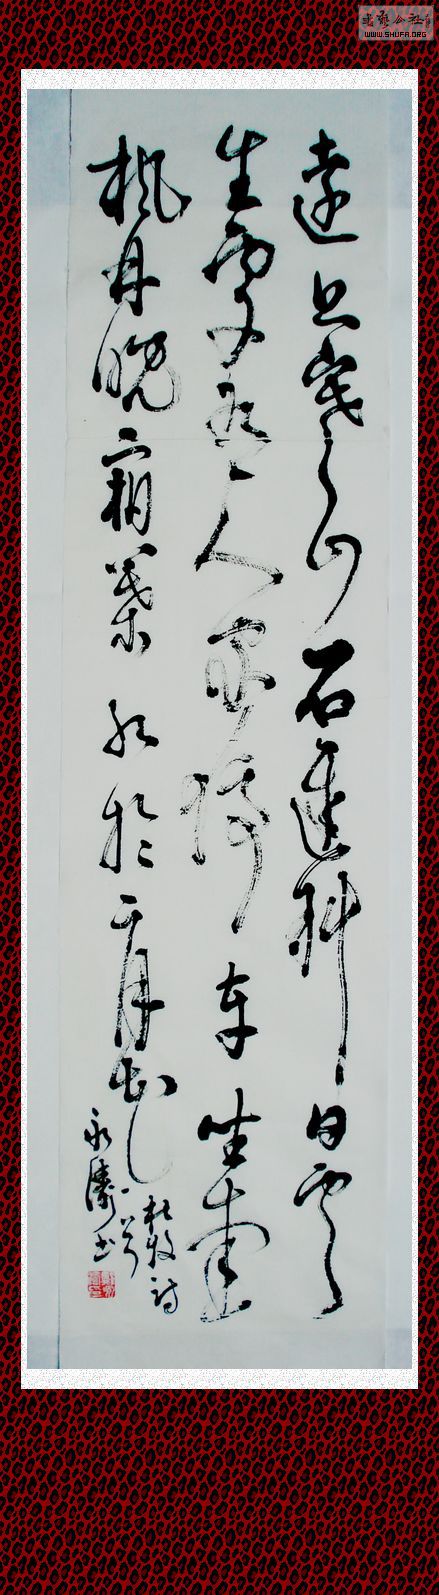 書藝公社
WWW.SHUFA.ORG
遠上寒山石逕斜白雲
生處有人家停車坐愛
楓林晚霜葉紅於二月花
杜牧诗
一首
永濤书